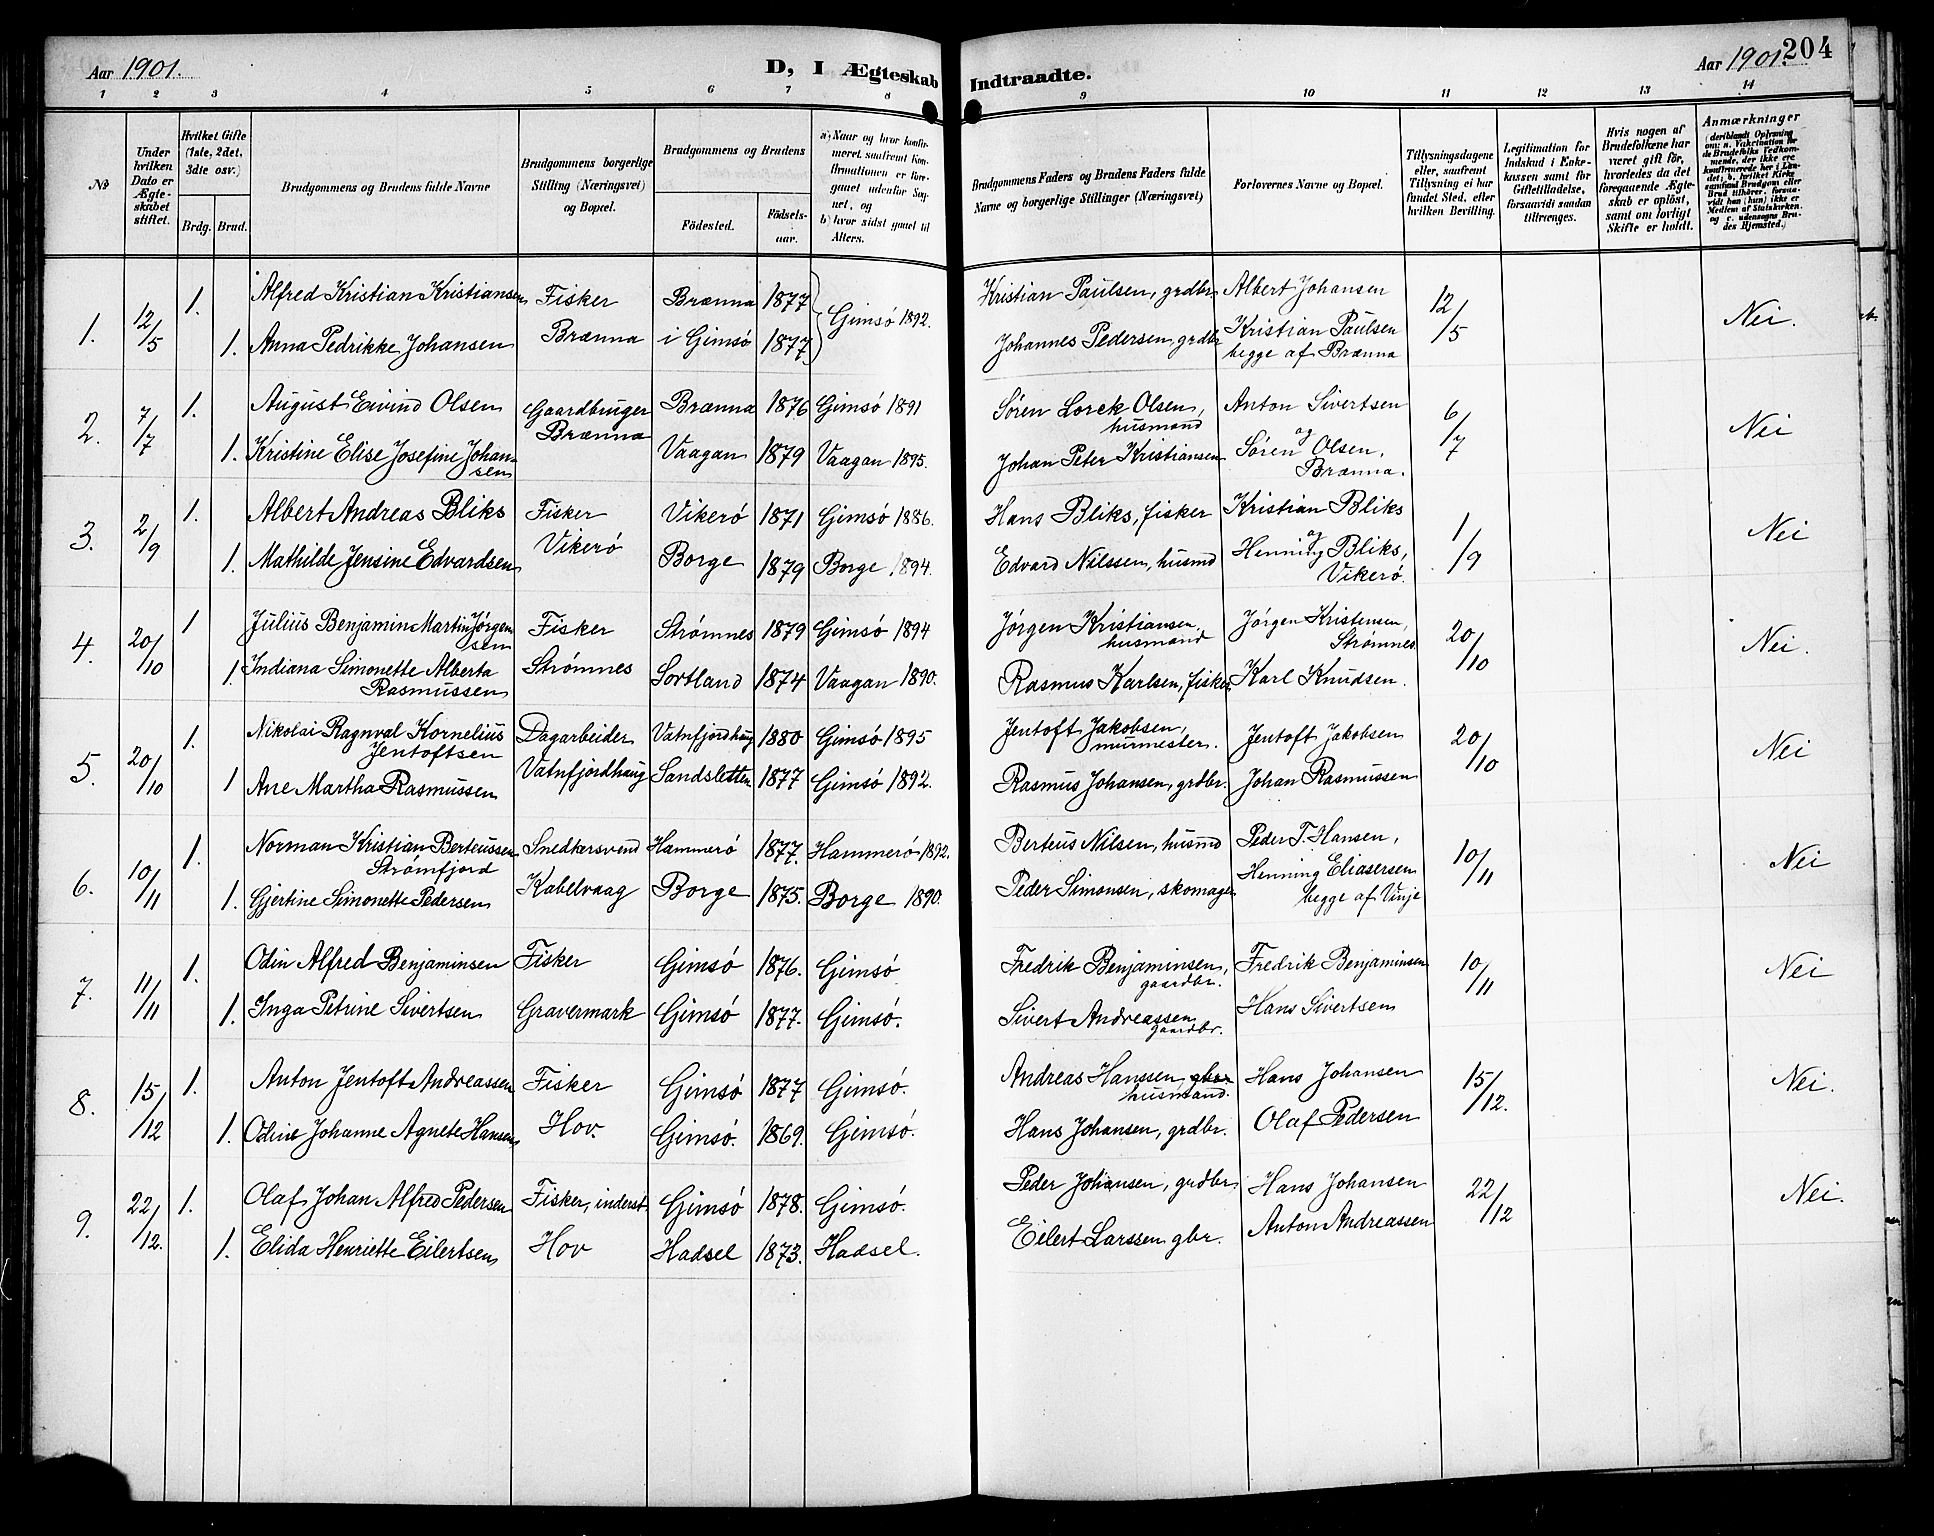 Aar 1901.
D, I Ægteskab Indtraadte.
Aar 1901.
204
1 2 3 4 5 6 7 8 9 10 11 12 13 14
№
Under hvilken Dato er Ægteskabet stiftet.
Hvilket Gifte (1ste, 2det, 3die osv.)
Brdg. Brud.
Brudgommens og Brudens fulde Navne
Brudgommens borgerlige Stilling (Næringsvei) og Bopæl.
Brudgommens og Brudens
Födested.
Födselsaar.
a) Naar og hvor konfirmeret, saafremt Konfirmationen er foregaaet udenfor Sognet, og
b) hvor sidst gaaet til Alters.
Brudgommens Faders og Brudens Faders fulde Navne og borgerlige Stillinger (Næringsvei)
Forlovernes Navne og Bopæl.
Tillysningsdagene eller, saafremt Tillysning ei har fundet Sted, efter hvilken Bevilling.
Legitimation for Indskud i Enkekassen samt for Giftetilladelse, forsaavidt saadan tiltrænges.
Hvis nogen af Brudefolkene har været gift för, hvorledes da det foregaaende Ægteskab er oplöst, samt om lovligt Skifte er holdt.
Anmærkninger
1. 12/5 1. Alfred Kristian Kristiansen Fisker Brænna 1877 Gimsö 1892. Kristian Paulsen, grdbr Albert Johansen 12/5 Nei.
1. Anna Pedrikke Johansen Brænna i Gimsö 1877 Johannes Pedersen, grdbr Kristian Paulsen
begge af Brænna
2. 7/7 1. August Eivind Olsen Gaardbruger Brænna 1876 Gimsö 1891 Søren Lorck Olsen, husmand Anton Sivertsen 6/7 Nei
1. Kristine Elise Josefine Johansen Brænna Vaagan 1879 Vaagan 1895. Johan Peter Kristiansen og Søren Olsen, Brænna.
3. 2/9 1. Albert Andreas Bliks Fisker Vikerö 1871 Gimsö 1886. Hans Bliks, fisker Kristian Bliks 1/9 Nei
1. Mathilde Jensine Edvardsen Vikerö Borge 1879 Borge 1894. Edvard Nilssen, husmd og Henning Bliks, Vikerö.
4. 20/10 1 Julius Benjamin Martin Jörgensen Fisker Strømnes 1879 Gimsö 1894 Jörgen Kristiansen, husmand Jörgen Kristensen, Strømnes 20/10 Nei.
1. Indiana Simonette Alberta Rasmussen Strømnes Sortland 1874 Vaagan 1890. Rasmus Karlsen, fisker Karl Knudsen.
5. 20/10 1. Nikolai Ragnval Kornelius Jentoftsen Dagarbeider Vatnfjordhaug 1880 Gimsö 1895 Jentoft Jakobsen, murmester. Jentoft Jakobsen 20/10 Nei
1 Ane Martha Rasmussen Vatnfjordhaug Sandsletten 1877 Gimsö 1892. Rasmus Johansen, grdbr. Johan Rasmussen
6. 10/11 1. Norman Kristian Berteussen Strømfjord Snedkersvend Hammerö 1877. Hammerö 1892. Berteus Nilsen, husmd Peder T. Hansen, 10/11 Nei
1. Gjertine Simonette Pedersen Kabelvaag Borge 1875. Borge 1890. Peder Simonsen, skomager Henning Eliasersen
begge af Vinje
7. 11/11 1. Odin Alfred Benjaminsen Fisker Gimsö 1876. Gimsö Fredrik Benjaminsen, gaardbr. Fredrik Benjaminsen 10/11 Nei
1. Inga Petrine Sivertsen Gravermark Gimsö 1877. Gimsö. Sivert Andreassen gaardbr. Hans Sivertsen
8. 15/12 1. Anton Jentoft Andreassen Fisker Gimsö 1877 Gimsö. Andreas Hanssen, gbr husmand. Hans Johansen 15/12. Nei.
1. Odine Johanne Agnete Hansen Hov. Gimsö. 1869. Gimsö. Hans Johansen, grdbr. Olaf Pedersen
9. 22/12. 1. Olaf Johan Alfred Pedersen Fisker, inderst Gimsö 1878. Gimsö. Peder Johansen, grdbr. Hans Johansen 22/12 Nei.
1. Elida Henriette Eilertsen Hov Hadsel 1873. Hadsel. Eilert Larssen gbr. Anton Andreassen